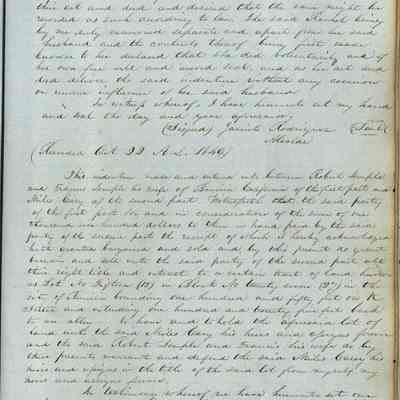 their act and deed and desired that the same might be
recorded as such according to law. The said Rachel being
by me duly examined separate and apart from her said
husband and the contents thereof being first made
known to her declared that she did voluntarily and of
her own free will and accord seal and as her act and
deed deliver the said indenture without any coercion
or undue influence of her said husband
In witness whereof, I have hereunto set my hand
and seal the day and year aforesaid
(Signed) Jacinto Rodriguez (Seal)
Alcalde
(Recorded Oct 22 A.D. 1849)
This indenture made and entered into between Robert Semple
and Frances Semple his wife of Benicia California of the first part and
Miles Cary of the second part Witnesseth that the said party
of the first part for and in consideration of the sum of one
thousand hundred dollars to them in hand paid by the said
party of the second part the receipt of which is hereby acknowledged
hath granted bargained and sold and by this present do grant
bargain and sell unto the said party of the second part all
their right title and interest to a certain tract of land known
as Lot No Fifteen (15) in Block No Twenty seven (27) in the
city of Benicia bounding one hundred and fifty feet on
Street and extending one hundred and twenty five feet back
to an alley. To have and to hold the aforesaid lot of
land unto the said Miles Cary his heirs and assigns forever
and the said Robert Semple and Frances his wife do by
these presents warrant and defend the said Miles Cary his
heirs and assigns in the title of the said lot from myself my
heirs and assigns forever.
In testimony whereof we have hereunto set our